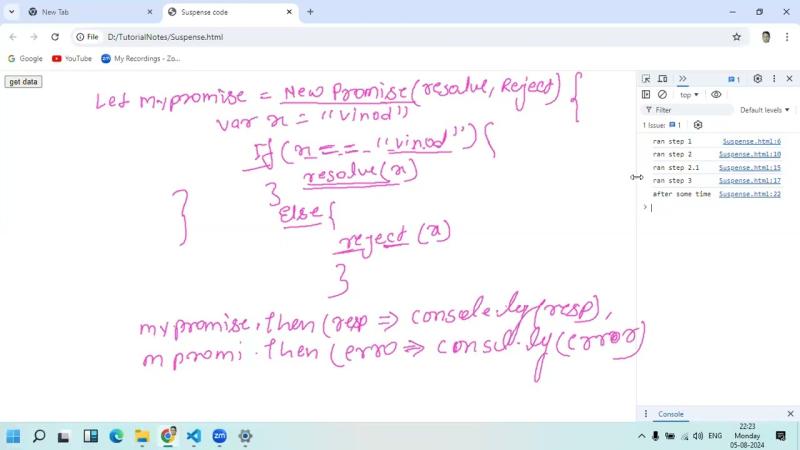 New Tab
Suspense code
File
D:/TutorialNotes/Suspense.html
Google
YouTube
My Recordings - Zo...
get data
Let mypromise = New Promise(resolve, Reject) {
var x = "vinod")
If (x == = "vinod") {
resolve(x)
}
Else {
reject (x)
}
}
mypromise.then (resp => console.log(resp),
m promi . then (erro => consol.log(error)
top
Filter
Default levels
1 Issue: 1
1
ran step 1 Suspense.html:6
ran step 2 Suspense.html:10
ran step 2.1 Suspense.html:15
ran step 3 Suspense.html:17
after some time Suspense.html:22
Console
ENG
22:23
Monday
05-08-2024